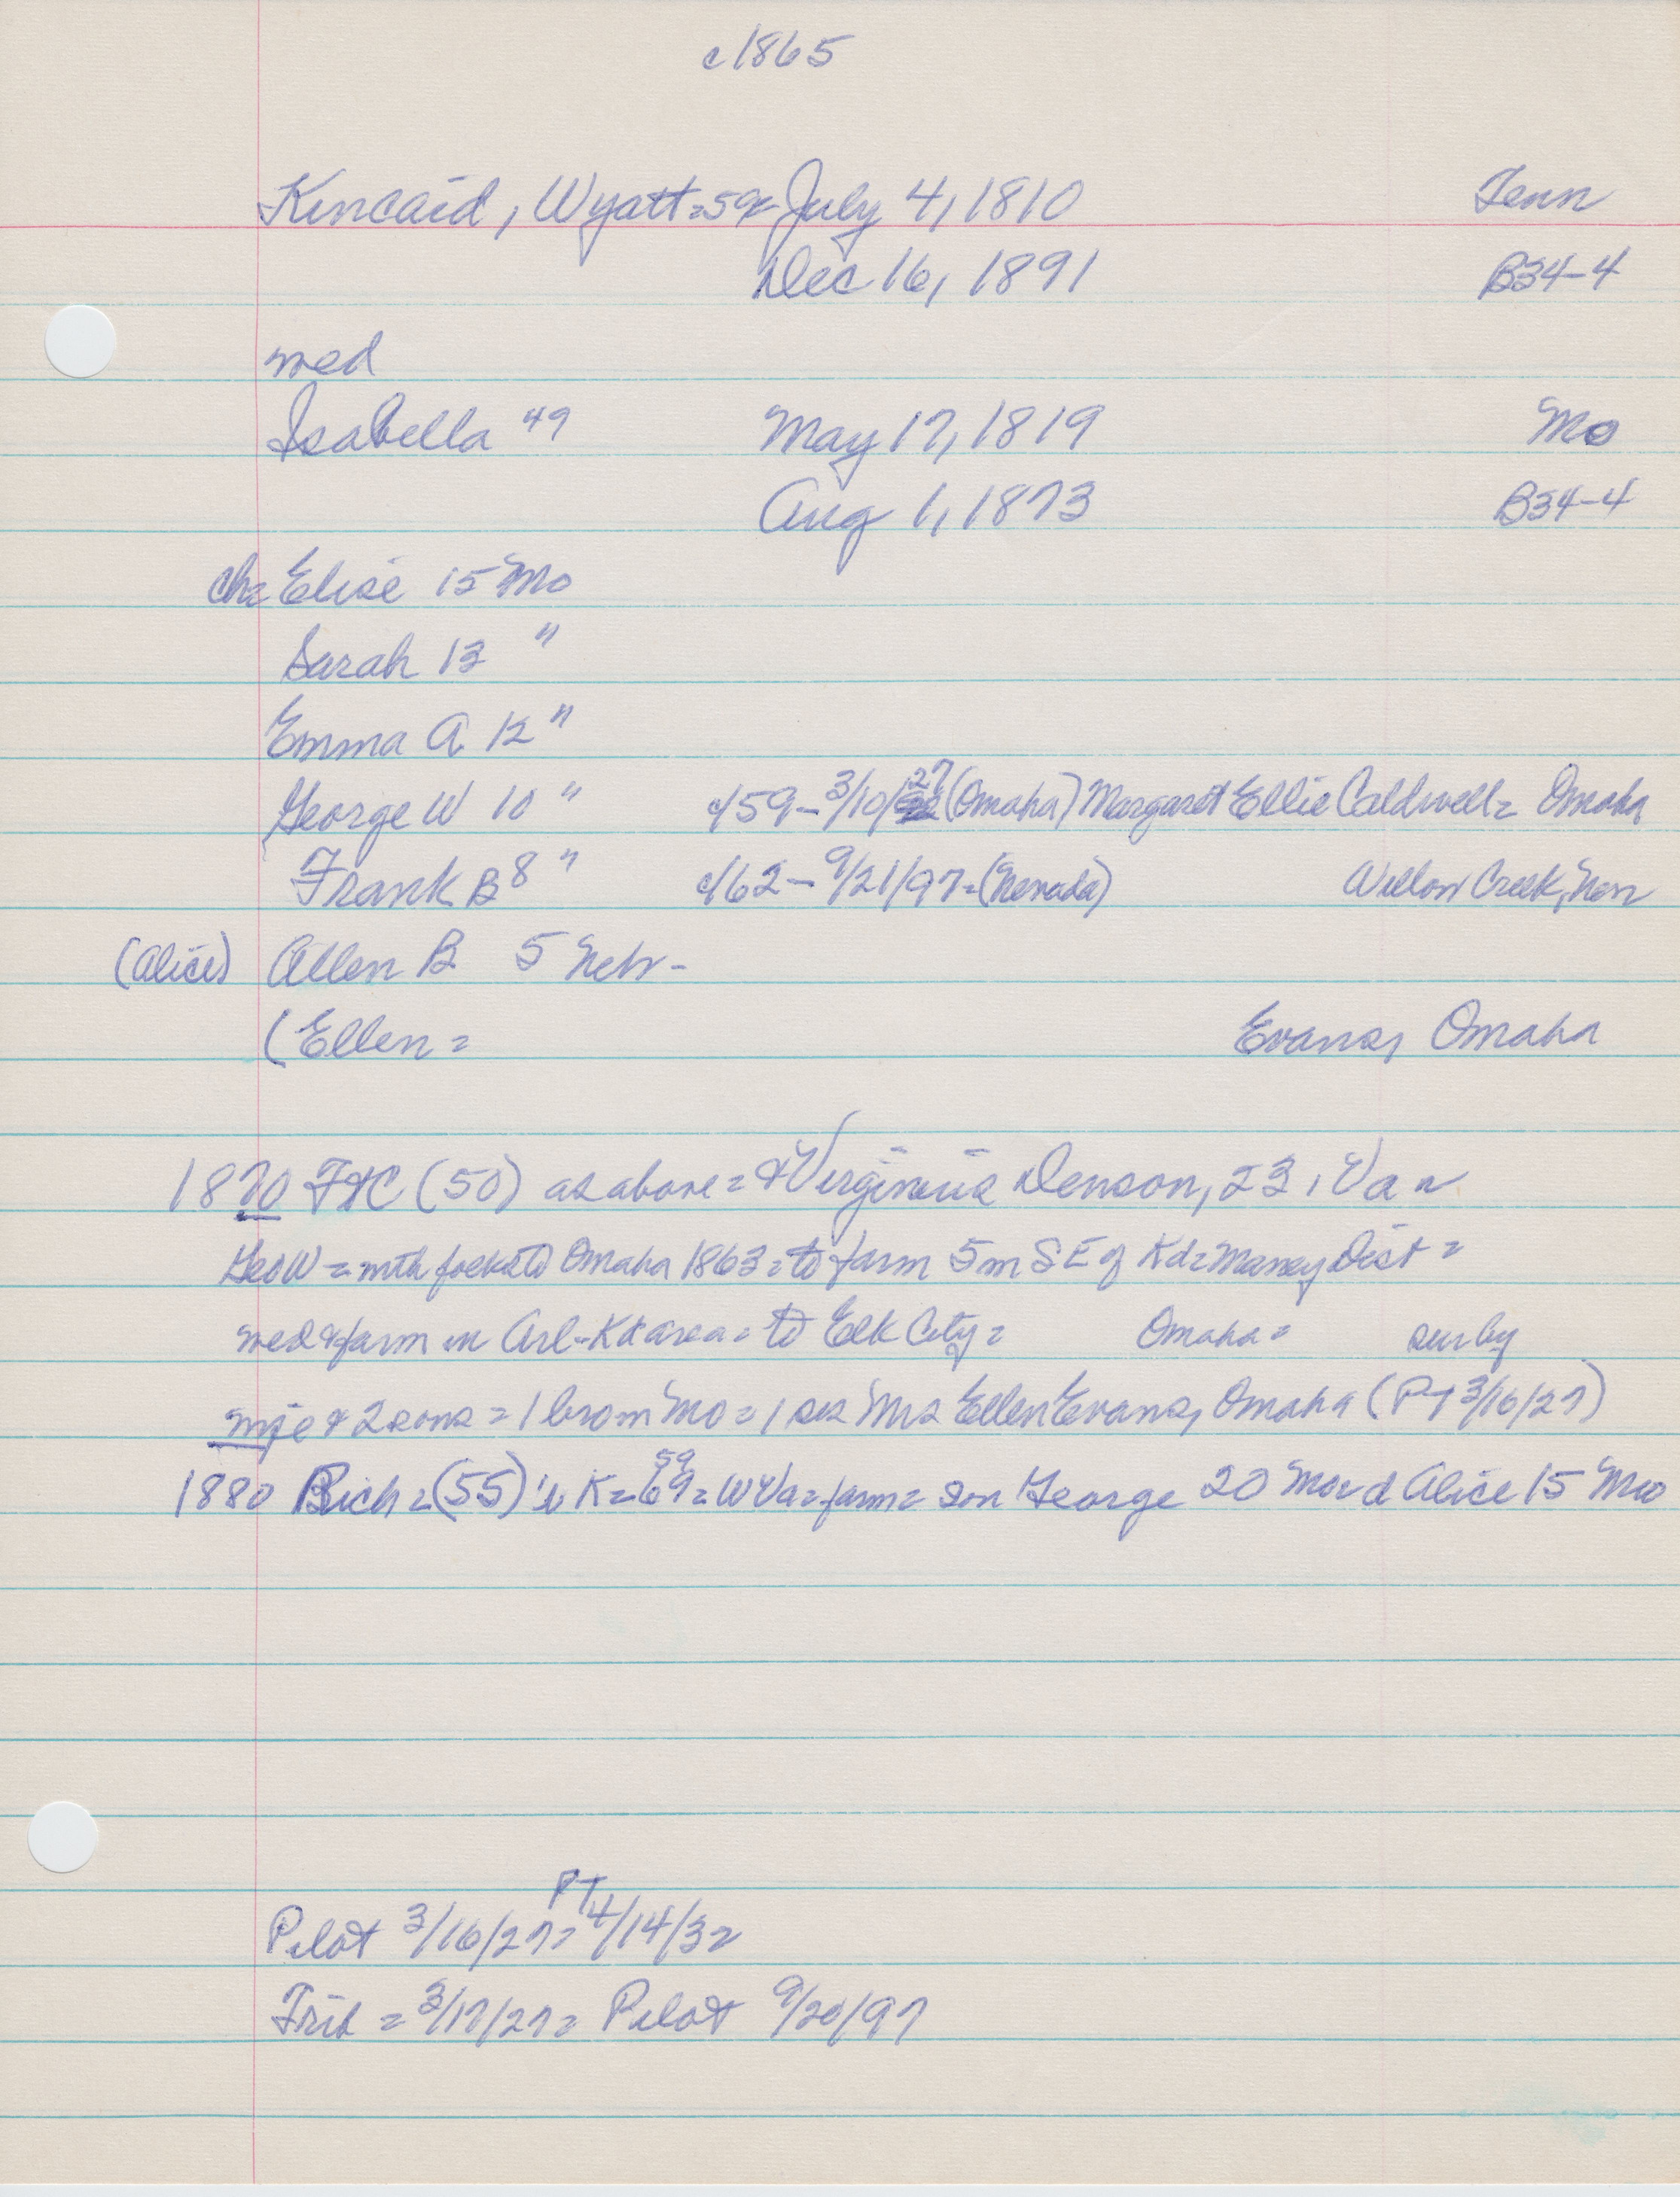 c1865
Kincaid, Wyatt = 59 = July 4, 1810 Tenn
Dec 16, 1891 B34-4
med
Isabella 49 May 17, 1819 Mo
Aug 1, 1873 B34-4
ch= Elise 15 Mo
Sarah 13 "
Emma A 12 "
George W 10 " c/59 - 3/10/27 (Omaha) Margaret Ellie Caldwell = Omaha
Frank B 8 " c/62 - 9/21/97 = (Nevada) Willow Creek, Nev
(Alice) Allen B 5 Nebr -
(Ellen = Evans, Omaha
1870 (50) as above = & Virginia Denson, 23, Va
Geo W = with folks to Omaha 1863 = to farm 5 m SE of Kd = Maney Dist =
med & farm in Arl-Kd area = to Elk City = Omaha = sur by
wife & 2 sons = 1 bro in Mo = 1 sis Mrs Ellen Evans, Omaha (PT 3/16/27)
1880 Rich = (55) K = 69 59 = W Va = farm = son George 20 Mo = d Alice 15 Mo
PT
Pilot 3/16/27 = 4/14/32
Trib = 3/17/27 = Pilot 9/20/97